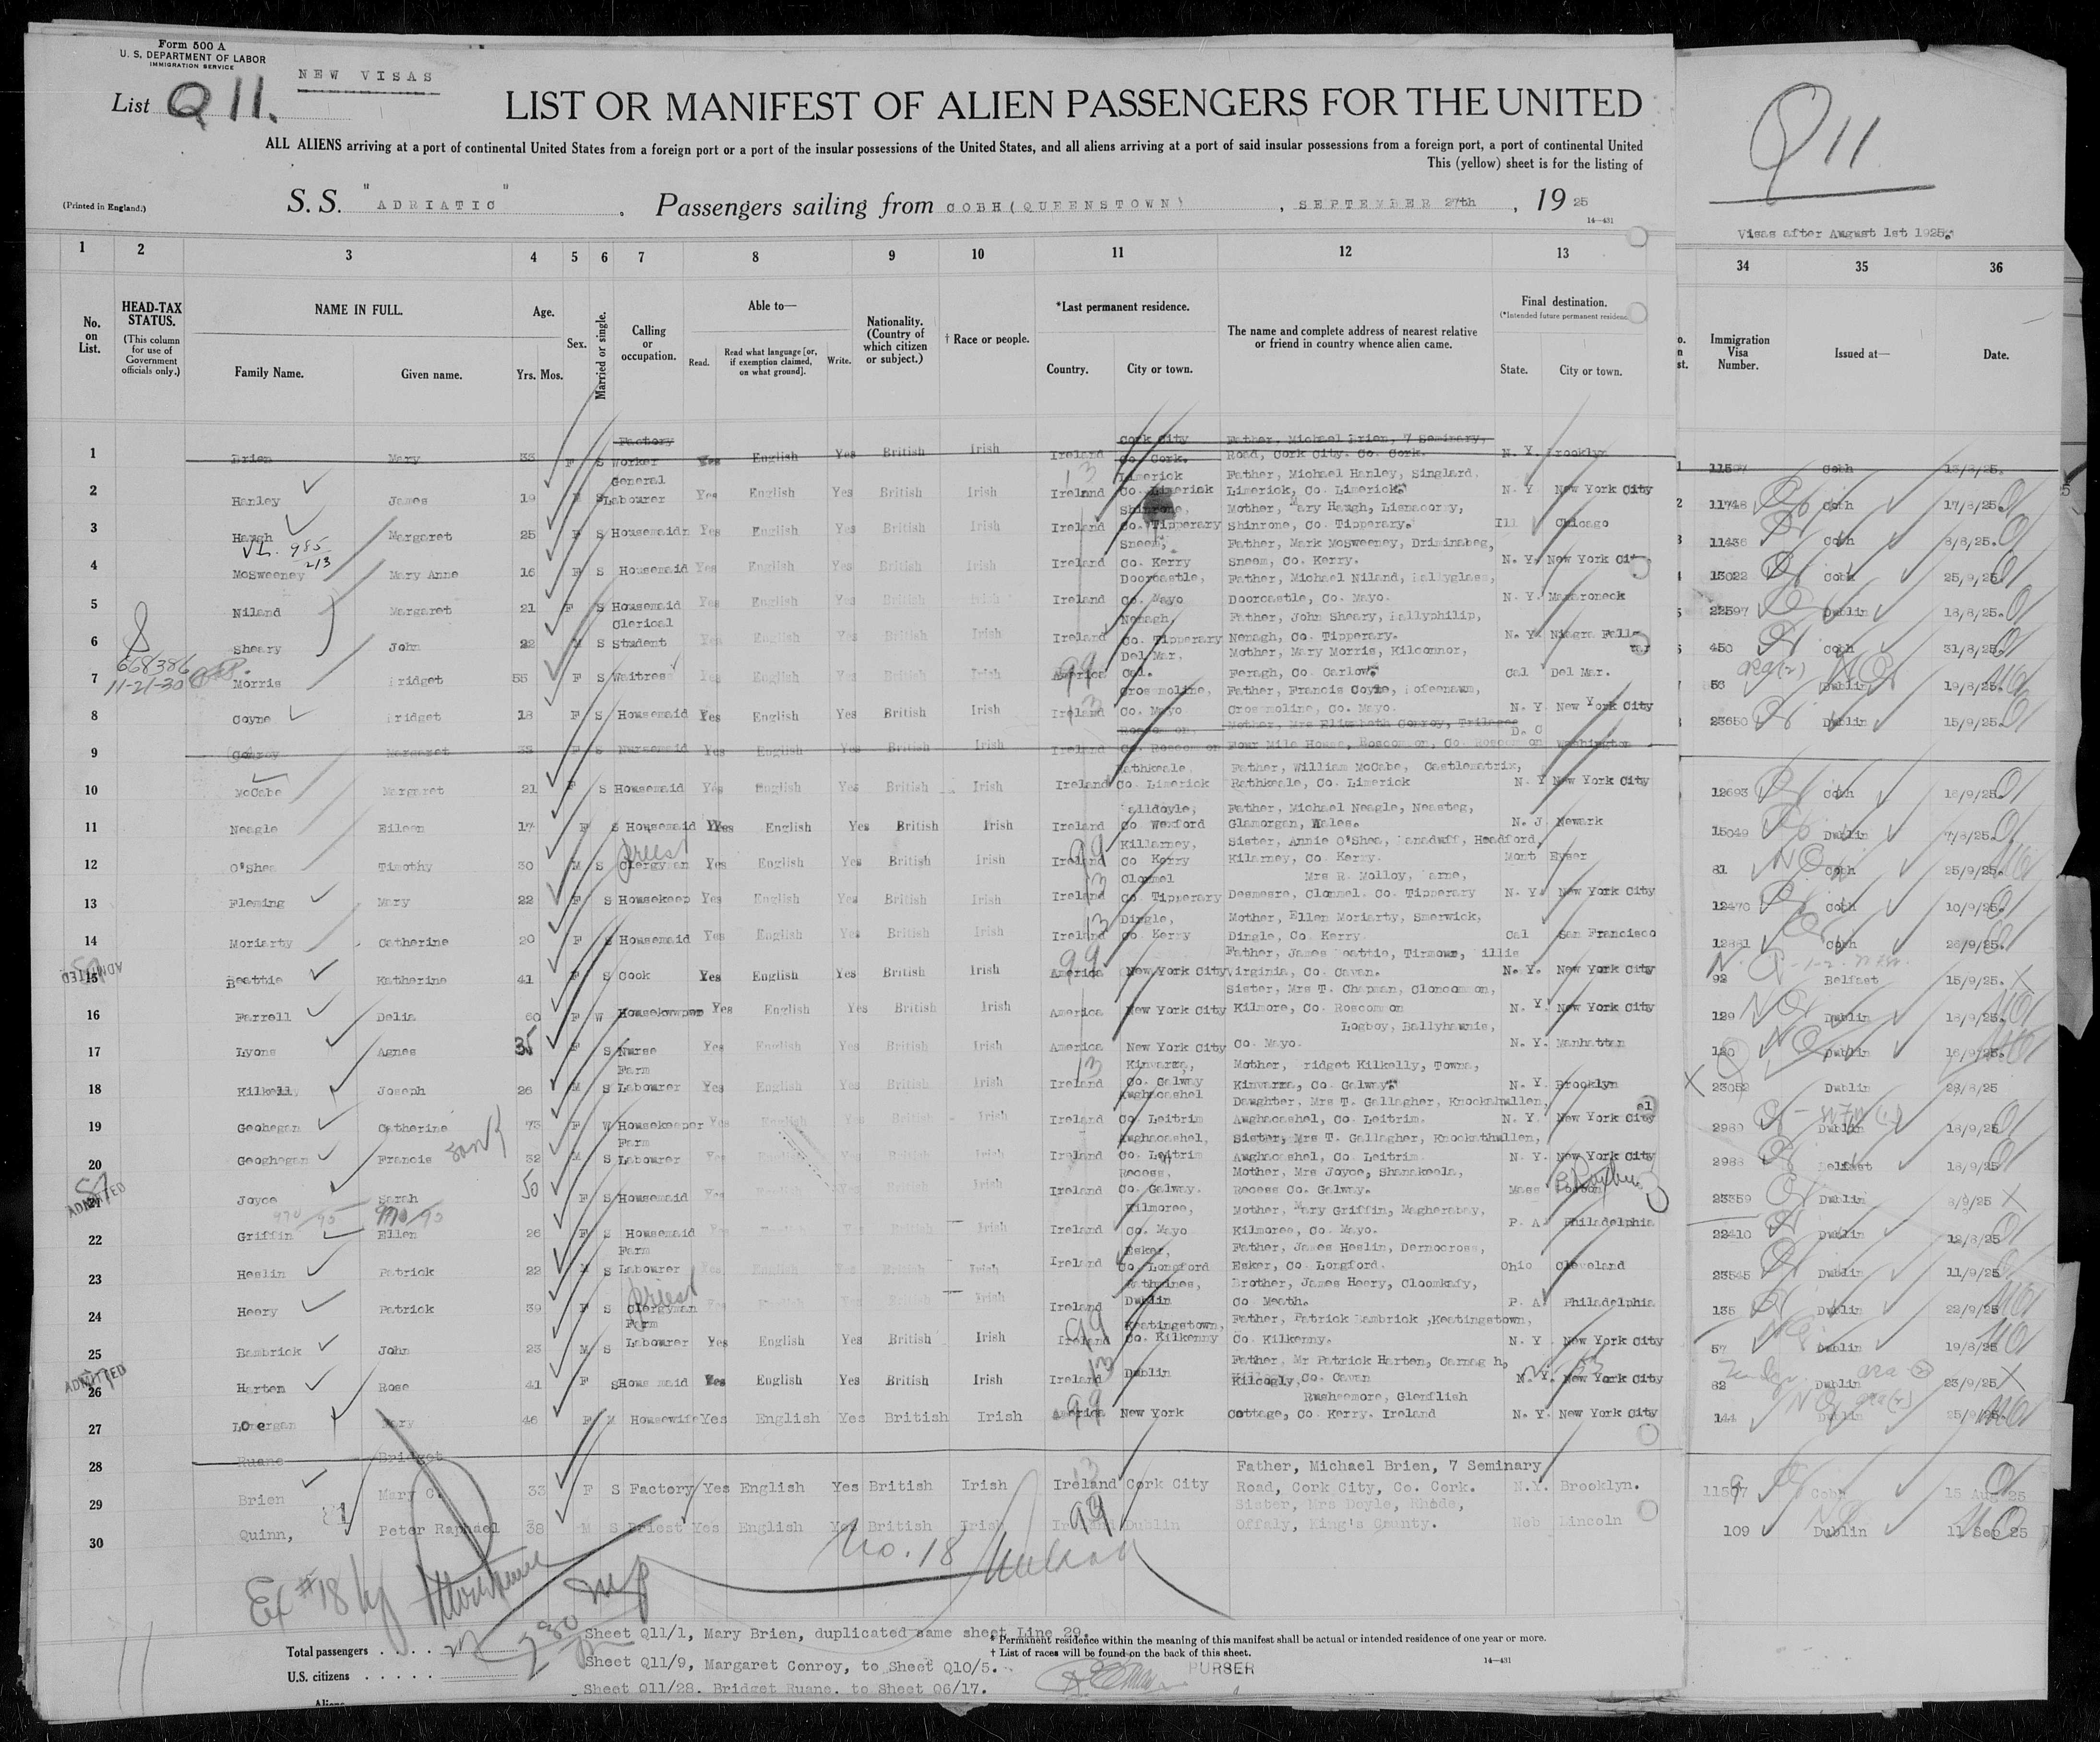 Form 500 A
U. S. DEPARTMENT OF LABOR
IMMIGRATION SERVICE
NEW VISAS
List Q 11.
LIST OR MANIFEST OF ALIEN PASSENGERS FOR THE UNITED
ALL ALIENS arriving at a port of continental United States from a foreign port or a port of the insular possessions of the United States, and all aliens arriving at a port of said insular possessions from a foreign port, a port of continental United
This (yellow) sheet is for the listing of
(Printed in England.)
S. S. "ADRIATIC" . Passengers sailing from COBH (QUEENSTOWN) , SEPTEMBER 27th , 1925
14—431
Q 11
Visas after August 1st 1925.
1 2 3 4 5 6 7 8 9 10 11 12 13 34 35 36
No. on List.
HEAD-TAX STATUS.
(This column for use of Government officials only.)
NAME IN FULL.
Family Name. Given name.
Age.
Yrs. Mos.
Sex.
Married or single.
Calling or occupation.
Able to—
Read. Read what language [or, if exemption claimed, on what ground]. Write.
Nationality. (Country of which citizen or subject.)
† Race or people.
*Last permanent residence.
Country. City or town.
The name and complete address of nearest relative or friend in country whence alien came.
Final destination.
(*Intended future permanent residence
State. City or town.
Immigration Visa Number. Issued at— Date.
1 Brien Mary 33 F S Factory Worker Yes English Yes British Irish Ireland Cork City Co Cork. Father, Michael Brien, 7 Seminary, Road, Cork City. Co. Cork. N. Y. Brooklyn 11597 Cobh 15/8/25.
2 Hanley James 19 S General Labourer Yes English Yes British Irish Ireland Limerick Co. Limerick Father, Michael Hanley, Singlard. Limerick, Co. Limerick. N. Y New York City 11748 Cobh 17/8/25.
3 Haugh Margaret 25 F S Housemaid Yes English Yes British Irish Ireland Shinrone, Co. Tipperary Mother, Mary Haugh, Lisnacorry, Shinrone, Co. Tipperary. Ill Chicago 11436 Cobh 8/8/25.
4 McSweeney Mary Anne 16 F S Housemaid Yes English Yes British Irish Ireland Sneem, Co. Kerry Father, Mark McSweeney, Driminabeg, Sneem, Co. Kerry. N. Y. New York City 13022 Cobh 25/9/25
5 Niland Margaret 21 F S Housemaid Yes English Yes British Irish Ireland Doorcastle, Co. Mayo Father, Michael Niland, Ballyglass, Doorcastle, Co. Mayo. N. Y. Mamaroneck 22597 Dublin 18/8/25.
6 Sheary John 22 M S Clerical Student Yes English Yes British Irish Ireland Nenagh, Co. Tipperary Father, John Sheary, Ballyphilip, Nenagh, Co. Tipperary. N. Y. Niagra Falls 450 Cobh 31/8/25.
668386
11-21-30
7 Morris Bridget 55 F S Waitress Yes English Yes British Irish America Del Mar, Cal. Mother, Mary Morris, Kilconnor, Feragh, Co. Carlow. Cal Del Mar. 56 Dublin 19/8/25.
8 Coyne Bridget 18 F S Housemaid Yes English Yes British Irish Ireland Crossmoline, Co. Mayo Father, Francis Coyne, Crossmoline, Co. Mayo. N. Y. New York City 23650 Dublin 15/9/25.
9 Conroy Margaret 33 F S Nursemaid Yes English Yes British Irish Ireland Roscommon, Co. Roscommon Mother, Mrs Elizabeth Conroy, Four Mile House, Roscommon, Co. Roscommon D. C Washington
10 McCabe Margaret 21 F S Housemaid Yes English Yes British Irish Ireland Rathkeale, Co. Limerick Father, William McCabe, Castlematrix, Rathkeale, Co. Limerick N. Y New York City 12693 Cobh 18/9/25.
11 Neagle Eileen 17 F S Housemaid Yes English Yes British Irish Ireland Co Wexford Father, Michael Neagle, Neasteg, Glamorgan, Wales. N. J. Newark 15049 Dublin 7/8/25.
12 O'Shea Timothy 30 M S Clergyman Priest Yes English Yes British Irish Ireland Killarney, Co Kerry Sister, Annie O'Shea, Headford, Kilarney, Co. Kerry. Mont 81 Cobh 25/9/25.
13 Fleming Mary 22 F S Housekeep Yes English Yes British Irish Ireland Clonmel Co Tipperary Mrs R. Molloy, Desmesre, Clonmel. Co. Tipperary N. Y. New York City 12470 Cobh 10/9/25.
14 Moriarty Catherine 20 F S Housemaid Yes English Yes British Irish Ireland Dingle, Co. Kerry Mother, Ellen Moriarty, Smerwick, Dingle, Co. Kerry Cal San Francisco 12881 Cobh 26/9/25.
15 ADMITTED Beattie Katherine 41 F S Cook Yes English Yes British Irish America New York City Father, James Beattie, Virginia, Co. Cavan. N. Y. New York City 92 Belfast 15/9/25.
16 Farrell Delia 60 F W Housekeeper Yes English Yes British Irish America New York City Sister, Mrs T. Chapman, Cloncommon, Kilmore, Co. Roscommon N. Y. New York City 129 Dublin 18/9/25.
17 Lyons Agnes 35 F S Nurse Yes English Yes British Irish America New York City Logboy, Ballyhaunis, Co. Mayo. N. Y. Manhattan 120 Dublin 16/9/25.
18 Kilkelly Joseph 26 M S Farm Labourer Yes English Yes British Irish Ireland Kinvarra, Co. Galway Mother, Bridget Kilkelly, Towna, Kinvarra, Co. Galway. N. Y. Brooklyn 23052 Dublin 28/8/25
19 Geohegan Catherine 73 F W Housekeeper Yes English Yes British Irish Ireland Aughacashel Co. Leitrim Daughter, Mrs T. Gallagher, Knockahullen, Aughacashel, Co. Leitrim. N. Y. New York City 2980 Dublin 18/9/25.
20 Geoghegan Francis 32 M S Farm Labourer Yes English Yes British Irish Ireland Aughacashel, Co. Leitrim Sister, Mrs T. Gallagher, Knockathullen, Aughacashel, Co. Leitrim. N. Y. New York City 2988 Belfast 18/9/25.
21 ADMITTED Joyce Sarah 50 F S Housemaid Ireland Recess, Co. Galway. Mother, Mrs Joyce, Shanakeela, Recess Co. Galway. Mass Boston 23359 Dublin 8/9/25 X
22 Griffin Ellen 26 F S Housemaid Yes English Yes British Irish Ireland Kilmoree, Co. Mayo Mother, Mary Griffin, Magherabay, Kilmoree, Co. Mayo. P. A. Philadelphia 22410 Dublin 12/8/25
23 Heslin Patrick 22 M S Farm Labourer Yes English Yes British Irish Ireland Esker, Co. Longford Father, James Heslin, Dernocross, Esker, Co. Longford. Ohio Cleveland 23545 Dublin 11/9/25
24 Heery Patrick 39 S Clergyman Priest Irish Ireland Rathmines, Dublin Brother, James Heery, Cloomkafy, Co Meath. P. A. Philadelphia 135 Dublin 22/9/25
25 Bambrick John 23 M S Farm Labourer Yes English Yes British Irish Ireland Keatingstown, Co. Kilkenny Father, Patrick Bambrick, Keatingstown, Co. Kilkenny. N. Y. New York City 57 Dublin 19/8/25
26 ADMITTED Harten Rose 41 F S Housemaid Yes English Yes British Irish Ireland Dublin Father, Mr Patrick Harten, Kilcogly, Co. Cavan N. Y. New York City 82 Dublin 23/9/25 X
27 Mary 46 F M Housewife Yes English Yes British Irish America New York Rusheemore, Glenflish Cottage, Co. Kerry. Ireland N. Y. New York City 144 Dublin 25/9/25.
28 Ruane Bridget
29 Brien Mary C. 33 F S Factory Yes English Yes British Irish Ireland Cork City Father, Michael Brien, 7 Seminary Road, Cork City, Co. Cork. N.Y. Brooklyn. 11597 Cobh 15 Aug 25
30 Quinn, Peter Raphael 38 M S Priest Yes English Yes British Irish Ireland Dublin Sister, Mrs Doyle, Rhode, Offaly, King's County. Neb Lincoln 109 Dublin 11 Sep 25
Ex #18 by
No. 18
Total passengers . . . . . 27
U.S. citizens . . . . .
Sheet Q11/1, Mary Brien, duplicated same sheet Line 29.
Sheet Q11/9, Margaret Conroy, to Sheet Q10/5.
Sheet Q11/28. Bridget Ruane. to Sheet Q6/17.
* Permanent residence within the meaning of this manifest shall be actual or intended residence of one year or more.
† List of races will be found on the back of this sheet.
14—431
PURSER